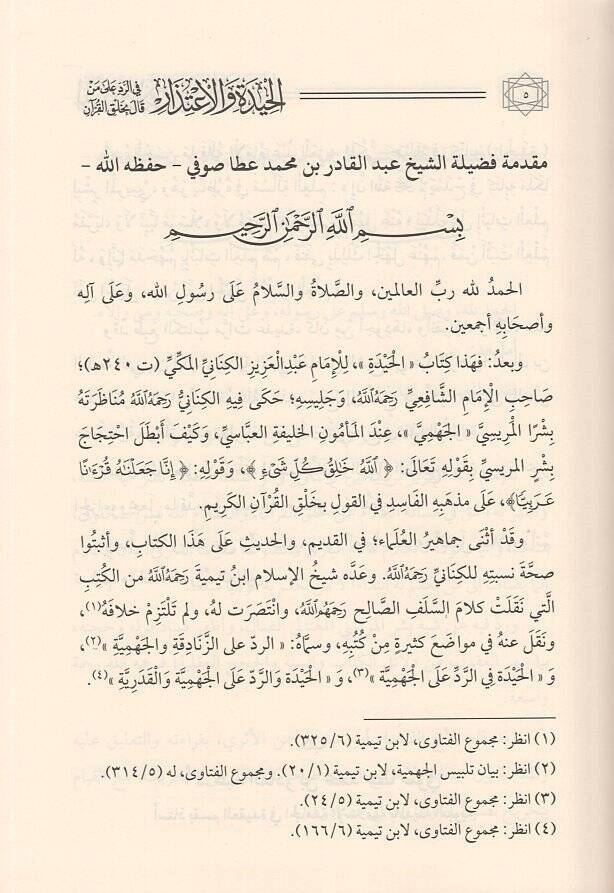 ٥
الحيدة والاعتذار في الرد على من
قال بخلق القرآن
مقدمة فضيلة الشيخ عبد القادر بن محمد عطا صوفي - حفظه الله -
بِسْمِ اللَّهِ الرَّحْمَٰنِ الرَّحِيمِ
الحمدُ لله ربِّ العالمين، والصَّلاةُ والسَّلامُ عَلَى رسُولِ الله، وعَلَى آلِه
وأصحَابِهِ أجمعين.
وبعدُ: فهَذا كِتَابُ « الْحَيْدَةِ »، لِلْإِمَامِ عَبْدِالْعَزِيزِ الكِنَانِيِّ الْمَكِّيِّ (ت ٢٤٠هـ)؛
صَاحِبِ الْإِمَامِ الشَّافِعِيِّ رَحِمَهُ اللَّهُ، وَجَلِيسِهِ؛ حَكَى فِيهِ الكِنَانِيُّ رَحِمَهُ اللَّهُ مُنَاظَرَتَهُ
بِشْرًا الْمَرِيسِيَّ « الْجَهْمِيَّ »، عِنْدَ الْمَأْمُونِ الخَلِيفَةِ العبَّاسيِّ، وَكَيْفَ أَبْطَلَ احْتِجَاجَ
بِشْرٍ المريسيِّ بِقَوْلِهِ تَعَالَى: ﴿ اللَّهُ خَالِقُ كُلِّ شَيْءٍ ﴾، وَقَوْلِهِ: ﴿ إِنَّا جَعَلْنَاهُ قُرْءَانًا
عَرَبِيًّا﴾، عَلَى مذهَبِهِ الفَاسِدِ في القولِ بخَلْقِ القُرْآنِ الكَرِيمِ.
وقَدْ أثْنَى جماهيرُ العُلَماءِ؛ في القديمِ، والحديثِ عَلَى هَذَا الكتابِ، وأثبتُوا
صحَّةَ نسبتِهِ للكنَانيِّ رَحِمَهُ اللَّهُ. وعَدَّه شيخُ الإسلام ابنُ تيميةَ رَحِمَهُ اللَّهُ من الكُتُبِ
الَّتي نَقَلَتْ كلامَ السَّلَفِ الصَّالحِ رَحِمَهُمُ اللَّهُ، وانْتَصَرَت لهُ، ولم تَلْتَزِمْ خلافَهُ(١)،
ونَقَلَ عنهُ في مواضعَ كثيرةٍ مِنْ كُتُبِهِ، وسمَّاهُ: « الردّ على الزَّنَادِقَةِ والجَهْمِيَّةِ »(٢)،
وَ « الْحَيْدَة فِي الرَّدِّ عَلَى الْجَهْمِيَّةِ »(٣)، وَ « الْحَيْدَة وَالرَّدّ عَلَى الْجَهْمِيَّةِ وَالْقَدَرِيَّةِ »(٤).
(١) انظر: مجموع الفتاوى، لابن تيمية (٣٢٥/٦).
(٢) انظر: بيان تلبيس الجهمية، لابن تيمية (٢٠/١). ومجموع الفتاوى، له (٣١٤/٥).
(٣) انظر: مجموع الفتاوى، لابن تيمية (٢٤/٥).
(٤) انظر: مجموع الفتاوى، لابن تيمية (١٦٦/٦).